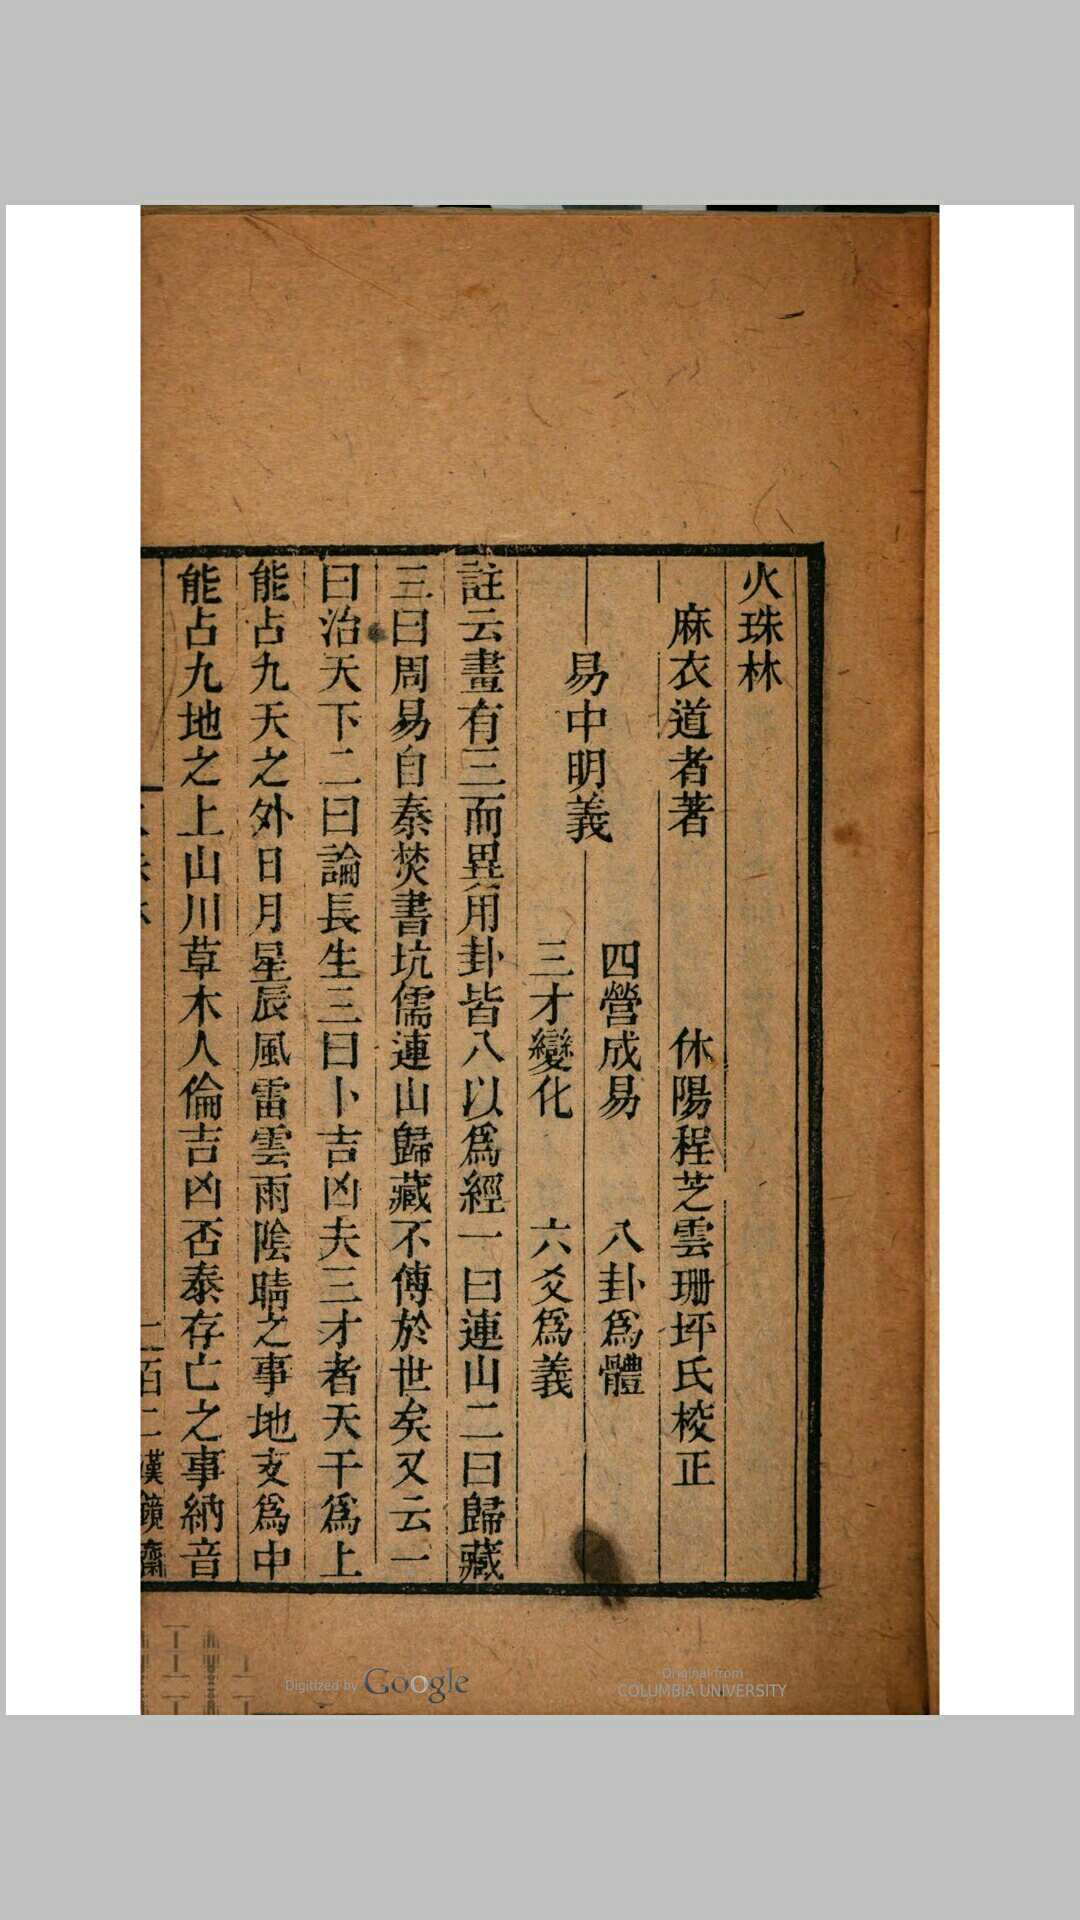 火珠林
麻衣道者著 休陽程芝雲珊坪氏校正
易中明義
四營成易 八卦爲體
三才變化 六爻爲義
註云畫有三而異用卦皆八以爲經一曰連山二曰歸藏
三曰周易自秦焚書坑儒連山歸藏不傳於世矣又云一
曰治天下二曰論長生三曰卜吉凶夫三才者天干爲上
能占九天之外日月星辰風雷雲雨陰晴之事地支爲中
能占九地之上山川草木人倫吉凶否泰存亡之事納音
二百二漢鏡齋
Digitized by Google
Original from
COLUMBIA UNIVERSITY